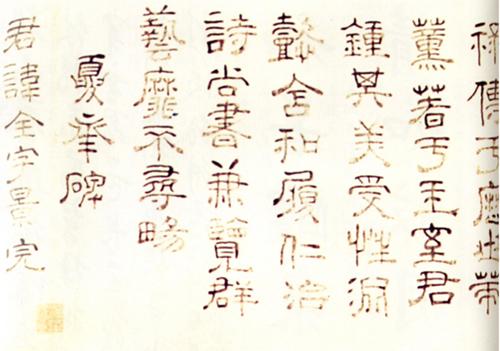 祿傳于歷世策
薰著于王室君
鍾其美受性淵
懿含和履仁治
詩尚書兼覽群
藝靡不尋暢
夏承碑
君諱全字景完